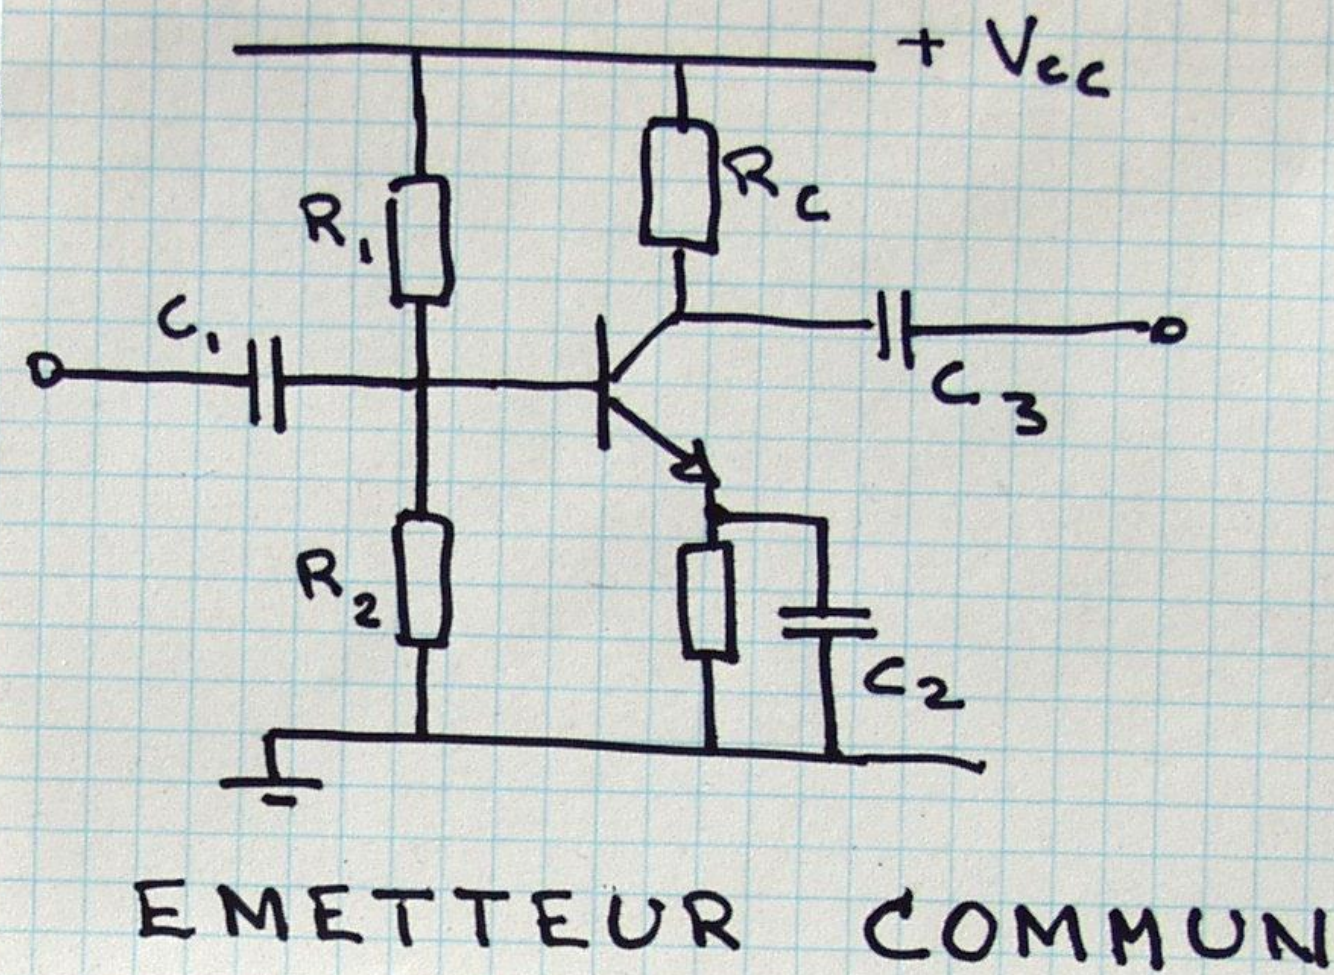 + Vcc
R1
Rc
C1
C3
R2
C2
EMETTEUR COMMUN